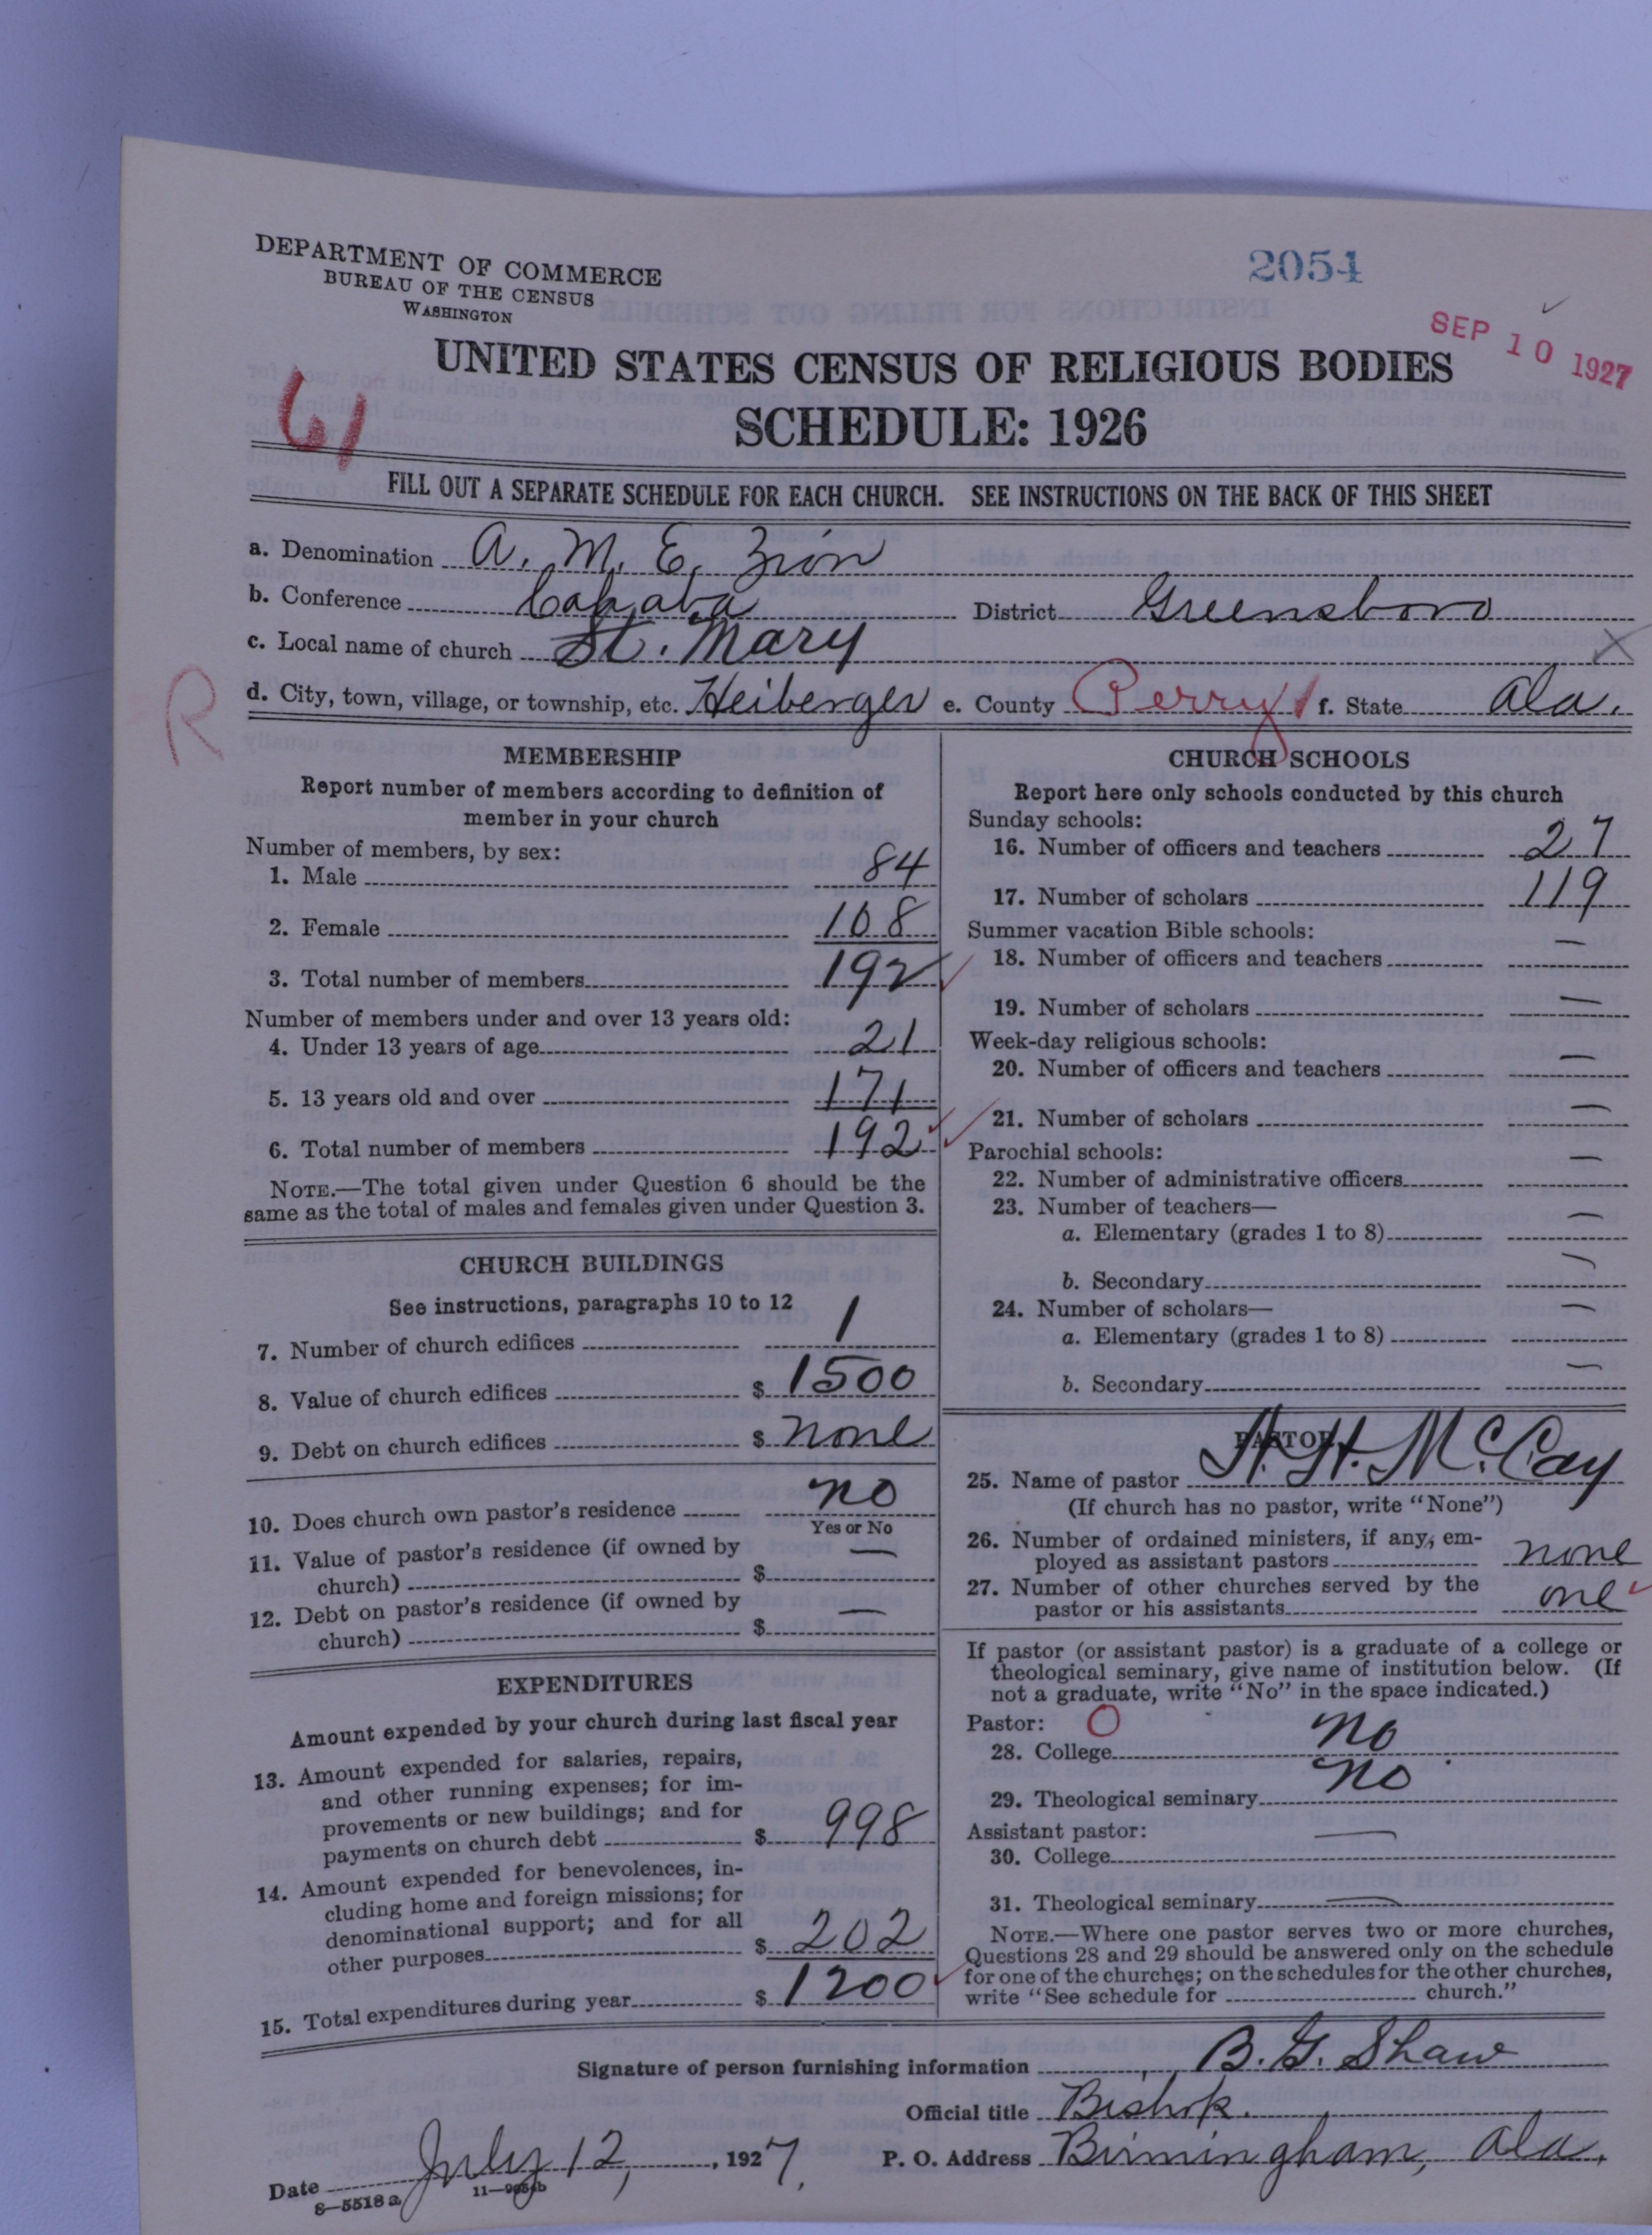 DEPARTMENT OF COMMERCE
BUREAU OF THE CENSUS
WASHINGTON
2054
SEP 10 1927
UNITED STATES CENSUS OF RELIGIOUS BODIES
SCHEDULE: 1926
61
FILL OUT A SEPARATE SCHEDULE FOR EACH CHURCH. SEE INSTRUCTIONS ON THE BACK OF THIS SHEET
a. Denomination A. M. E. Zion
b. Conference Cahaba District Greensboro
c. Local name of church St. Mary
R
d. City, town, village, or township, etc. Heiberger e. County Perry f. State Ala.
MEMBERSHIP
Report number of members according to definition of
member in your church
Number of members, by sex:
1. Male 84
2. Female 108
3. Total number of members 192
Number of members under and over 13 years old:
4. Under 13 years of age 21
5. 13 years old and over 171
6. Total number of members 192
NOTE.—The total given under Question 6 should be the
same as the total of males and females given under Question 3.
CHURCH BUILDINGS
See instructions, paragraphs 10 to 12
7. Number of church edifices 1
8. Value of church edifices $ 1500
9. Debt on church edifices $ none
10. Does church own pastor's residence no
Yes or No
11. Value of pastor's residence (if owned by
church) $ —
12. Debt on pastor's residence (if owned by
church) $ —
EXPENDITURES
Amount expended by your church during last fiscal year
13. Amount expended for salaries, repairs,
and other running expenses; for im-
provements or new buildings; and for
payments on church debt $ 998
14. Amount expended for benevolences, in-
cluding home and foreign missions; for
denominational support; and for all
other purposes $ 202
15. Total expenditures during year $ 1200
CHURCH SCHOOLS
Report here only schools conducted by this church
Sunday schools:
16. Number of officers and teachers 27
17. Number of scholars 119
Summer vacation Bible schools:
18. Number of officers and teachers —
19. Number of scholars —
Week-day religious schools:
20. Number of officers and teachers —
21. Number of scholars —
Parochial schools:
22. Number of administrative officers —
23. Number of teachers—
a. Elementary (grades 1 to 8) —
b. Secondary —
24. Number of scholars—
a. Elementary (grades 1 to 8) —
b. Secondary —
PASTOR
25. Name of pastor H. H. McCay
(If church has no pastor, write "None")
26. Number of ordained ministers, if any, em-
ployed as assistant pastors none
27. Number of other churches served by the
pastor or his assistants one
If pastor (or assistant pastor) is a graduate of a college or
theological seminary, give name of institution below. (If
not a graduate, write "No" in the space indicated.)
Pastor: O
28. College no
29. Theological seminary no
Assistant pastor:
30. College —
31. Theological seminary —
NOTE.—Where one pastor serves two or more churches,
Questions 28 and 29 should be answered only on the schedule
for one of the churches; on the schedules for the other churches,
write "See schedule for church."
Signature of person furnishing information B. G. Shaw
Official title Bishop.
Date July 12, 1927. P. O. Address Birmingham, Ala.
8—5518 a